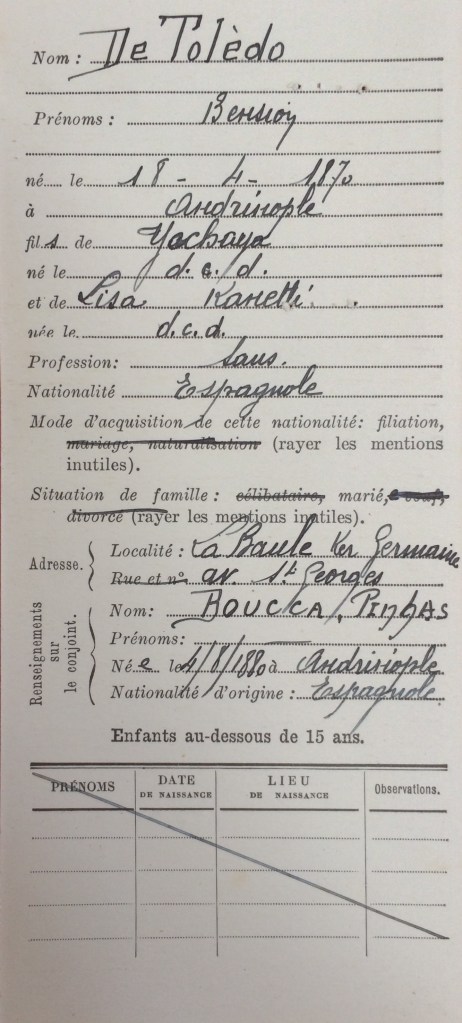 Nom : De Tolèdo
Prénoms : Bension
né le 18 - 4 - 1870
à Andrinople
fils de Yochaya
né le d. c. d.
et de Lisa Kanetti
née le d.c.d.
Profession: sans.
Nationalité Espagnole
Mode d'acquisition de cette nationalité: filiation,
mariage, naturalisation (rayer les mentions
inutiles).
Situation de famille : célibataire, marié, veuf,
divorcé (rayer les mentions inutiles).
Adresse.
Localité : La Baule Ker Germaine
Rue et n° av. St Georges
Renseignements
sur
le conjoint.
Nom: BOUCCA, PINHAS
Prénoms:
Née le 4/8/1880 à Andrinople
Nationalité d'origine : Espagnole
Enfants au-dessous de 15 ans.
PRÉNOMS DATE DE NAISSANCE LIEU DE NAISSANCE Observations.